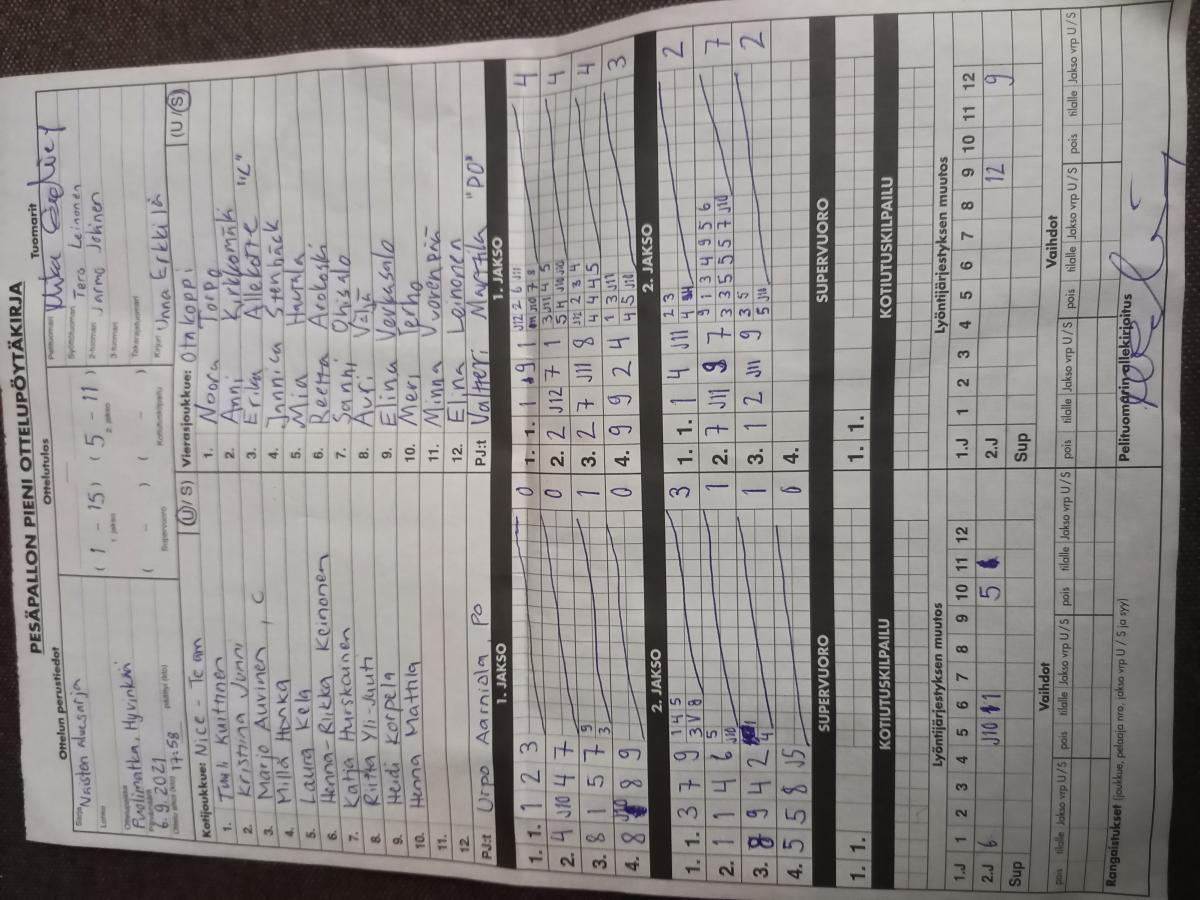 PESÄPALLON PIENI OTTELUPÖYTÄKIRJA
Ottelun perustiedot
Ottelutulos
Tuomarit
Sarja Naisten aluesarja
Lohko
Puolimatka, Hyvinkää
6.9.2021
17:58
päättyi (klo)
( 1 - 15 ) ( 5 - 11 )
1. jakso 2. jakso
( - ) ( - )
Supervuoro Kotiutuskilpailu
Pelituomari Mika
Syöttötuomari Tero Leinonen
2-tuomari Jarmo Jokinen
3-tuomari
Takarajatuomari
Kirjuri Unna Erkkilä
Kotijoukkue: Nice-Team (U/S)
1. Tuuli Kuittinen
2. Kristina Junni
3. Marjo Auvinen, C
4. Milla Honka
5. Laura Kela
6. Henna-Riikka Keinonen
7. Katja Hurskainen
8. Riitta Yli-Juuti
9. Heidi Korpela
10. Henna Mattila
11.
12.
PJ:t Urpo Aarniala, PO
Vierasjoukkue: Otakoppi (U/S)
1. Noora Torpo
2. Anni Kirkkomäki
3. Erika Allekotte "C"
4. Jannica Stenbäck
5. Mia Hautala
6. Reetta Arokoski
7. Sanni Ohisalo
8. Auri Välä
9. Elina Verkasalo
10. Meri Jerho
11. Minna Vorenpää
12. Elina Leinonen
PJ:t Valtteri Marttila "PO"
1. JAKSO
1. 1. 1 2 3 0
2. 4 J10 4 7 0
3. 8 1 5 7 9 3 1
4. 8 J10 8 9 0
2. JAKSO
1. 1. 3 7 9 1 4 5 3 V 8 3
2. 1 1 4 6 5 J10 1
3. 8 9 4 2 4 1
4. 5 5 8 J5 0
SUPERVUORO
1. 1.
KOTIUTUSKILPAILU
Lyöntijärjestyksen muutos
1.J 1 2 3 4 5 6 7 8 9 10 11 12
2.J 6 J10 11 5
Sup
Vaihdot
pois tilalle Jakso vrp U/S pois tilalle Jakso vrp U/S pois tilalle Jakso vrp U/S
Rangaistukset (joukkue, pelaaja nro, jakso vrp U / S ja syy)
1. JAKSO
1. 1. 1 9 1 J12 2 6 J11 J10 7 8 4
2. 2 J12 7 1 3 J11 4 5 5 J1 J10 J10 4
3. 2 7 J11 8 J12 2 3 4 4 4 4 5 4
4. 9 9 2 4 1 3 J11 4 5 J10 3
2. JAKSO
1. 1. 1 4 J11 2 3 4 2
2. 7 J11 8 7 9 1 3 4 9 5 6 3 3 5 5 5 7 J10 7
3. 1 2 J11 9 3 5 5 J10 2
4.
SUPERVUORO
1. 1.
KOTIUTUSKILPAILU
Lyöntijärjestyksen muutos
1.J 1 2 3 4 5 6 7 8 9 10 11 12
2.J 12 9
Sup
Vaihdot
pois tilalle Jakso vrp U/S pois tilalle Jakso vrp U/S pois tilalle Jakso vrp U/S
Pelituomarin allekirjoitus